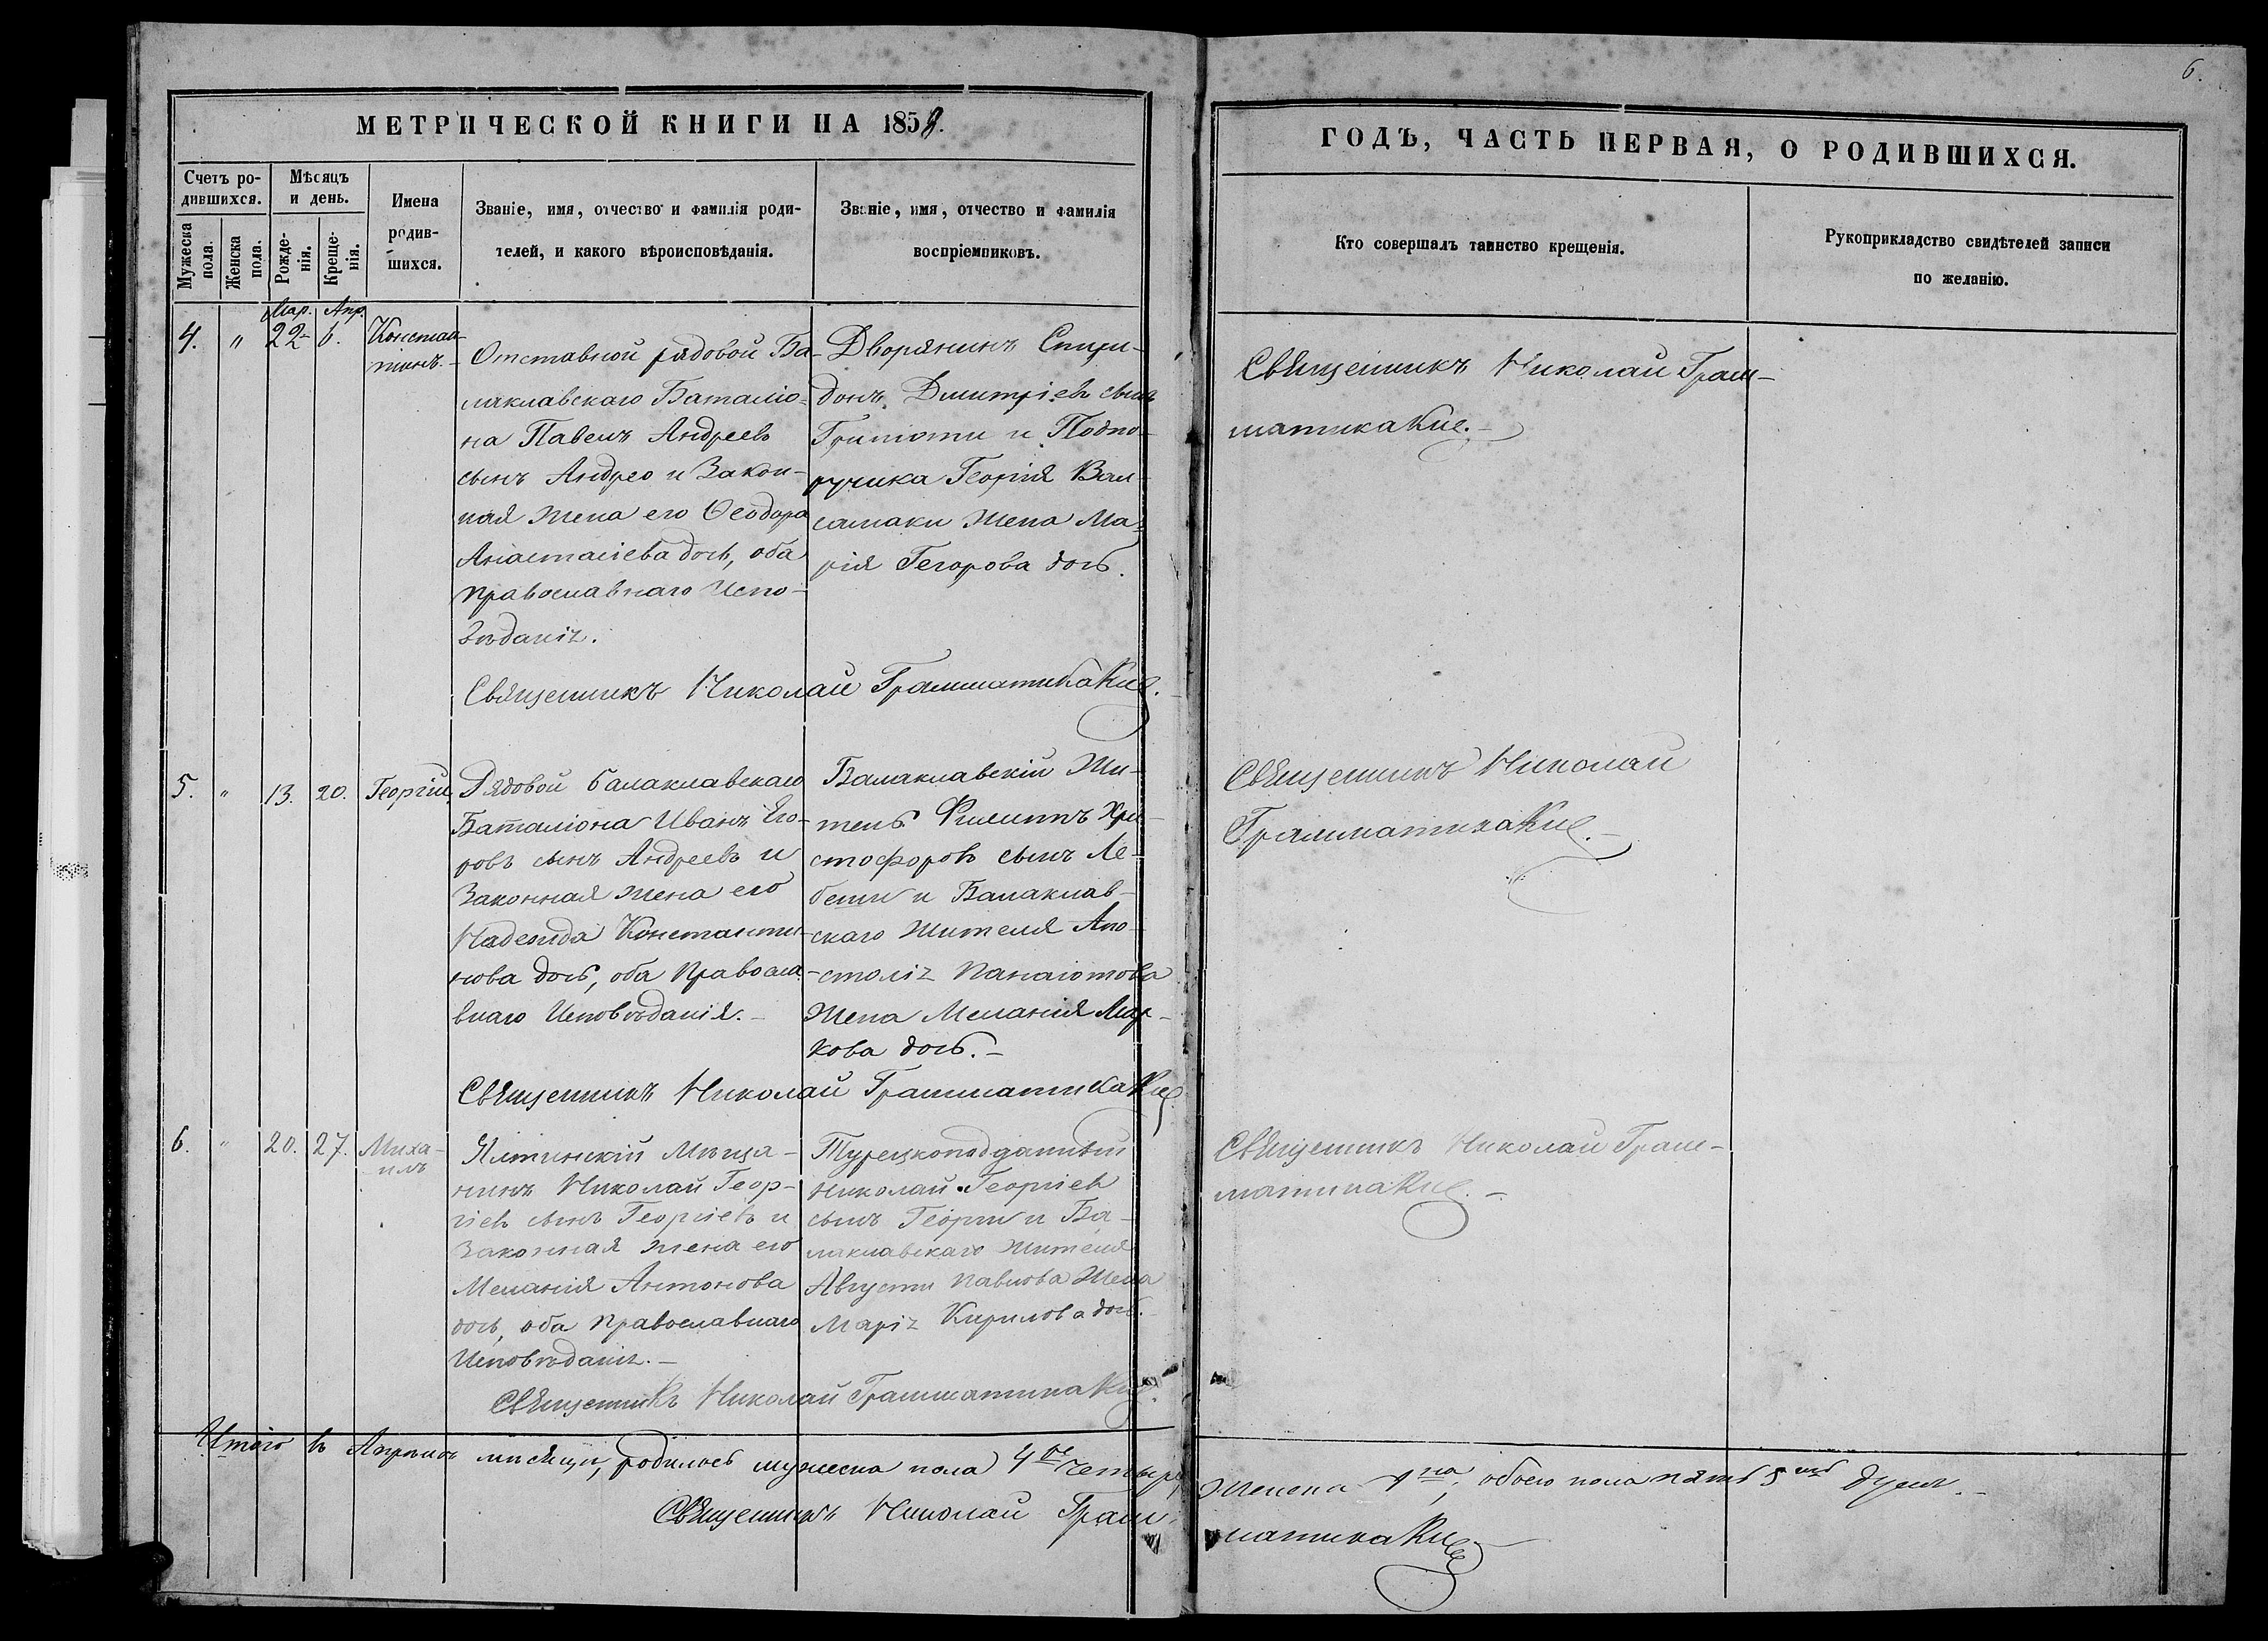 6.
МЕТРИЧЕСКОЙ КНИГИ НА 1858.
Счетъ ро-
дившихся.
Мѣсяцъ
и день.
Имена
родив-
шихся.
Званіе, имя, отчество и фамилія роди-
телей, и какого вѣроисповѣданія.
Званіе, имя, отчество и фамилія
воспріемниковъ.
Мужеска
пола.
Женска
пола.
Рожде-
нія.
Креще-
нія.
ГОДЪ, ЧАСТЬ ПЕРВАЯ, О РОДИВШИХСЯ.
Кто совершалъ таинство крещенія.
Рукоприкладство свидѣтелей записи
по желанію.
Мар. Апр.
4. " 22 6. Констан-
тинъ.
Отставной рядовой Ба-
лаклавскаго Баталіо-
на Павелъ Андреевъ
сынъ Андрео и Закон-
ная жена его Ѳеодора
Анастасіева дочь, оба
православнаго Испо-
вѣданія.
Дворянинъ Спири-
донъ Дмитріевъ сынъ
Грипоти и Подпо-
ручика Георгія Вал-
самаки жена Ма-
рія Гегорова дочь.
Священникъ Николай Грам-
матикакис.
Священникъ Николай Грамматикакис.
5. " 13. 20. Георгій.
Рядовой балаклавскаго
Баталіона Иванъ Его-
ровъ сынъ Андреевъ и
Законная жена его
Надежда Константи-
нова дочь, оба Правосла-
внаго Исповѣданія.
Балаклавскій Жи-
тель Филиппъ Хри-
стофоровъ сынъ Ле-
бети и Балаклав-
скаго жителя Апо-
столія Панаіотова
Жена Меланія Мар-
кова дочь.
Священникъ Николай
Грамматикакис.
Священникъ Николай Грамматикакис
6. " 20. 27. Миха-
илъ
Ялтинскій Мѣща-
нинъ Николай Геор-
гіевъ сынъ Георгіевъ и
Законная жена его
Меланія Антонова
дочь, оба Православнаго
Исповѣданія.
Турецкоподданный
Николай Георгіевъ
сынъ Георги и Ба-
лаклавскаго жителя
Августи Павлова Жена
Марія Кирилова дочь.
Священникъ Николай Грам-
матикакис.
Священникъ Николай Грамматикакис.
Итого въ Апрѣлѣ мѣсяцѣ, родилось мужеска пола 4ре четыре, женска 1на, обоего пола пять 5ть душъ.
Священникъ Николай Грам-
матикакис